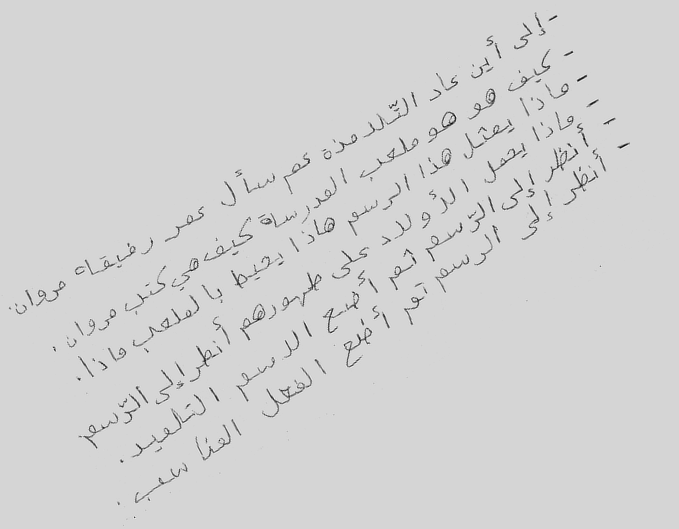 - إلى أين عاد التّلامذة عم سأل عمر رفيقاه مروان.
- كيف هو هو ملعب المدرساة كيف هي كتب مروان.
- ماذا يمثل هذا الرسم هاذا يحيط بالملعب ماذا.
- ماذا يحمل الأولاد على ظهورهم أنظر إلى الرّسم
- أنظر إلى الرّسم ثم أضع الاسم التلميد.
- أنظر إلى الرسم تم أضع الفعل المناسب.